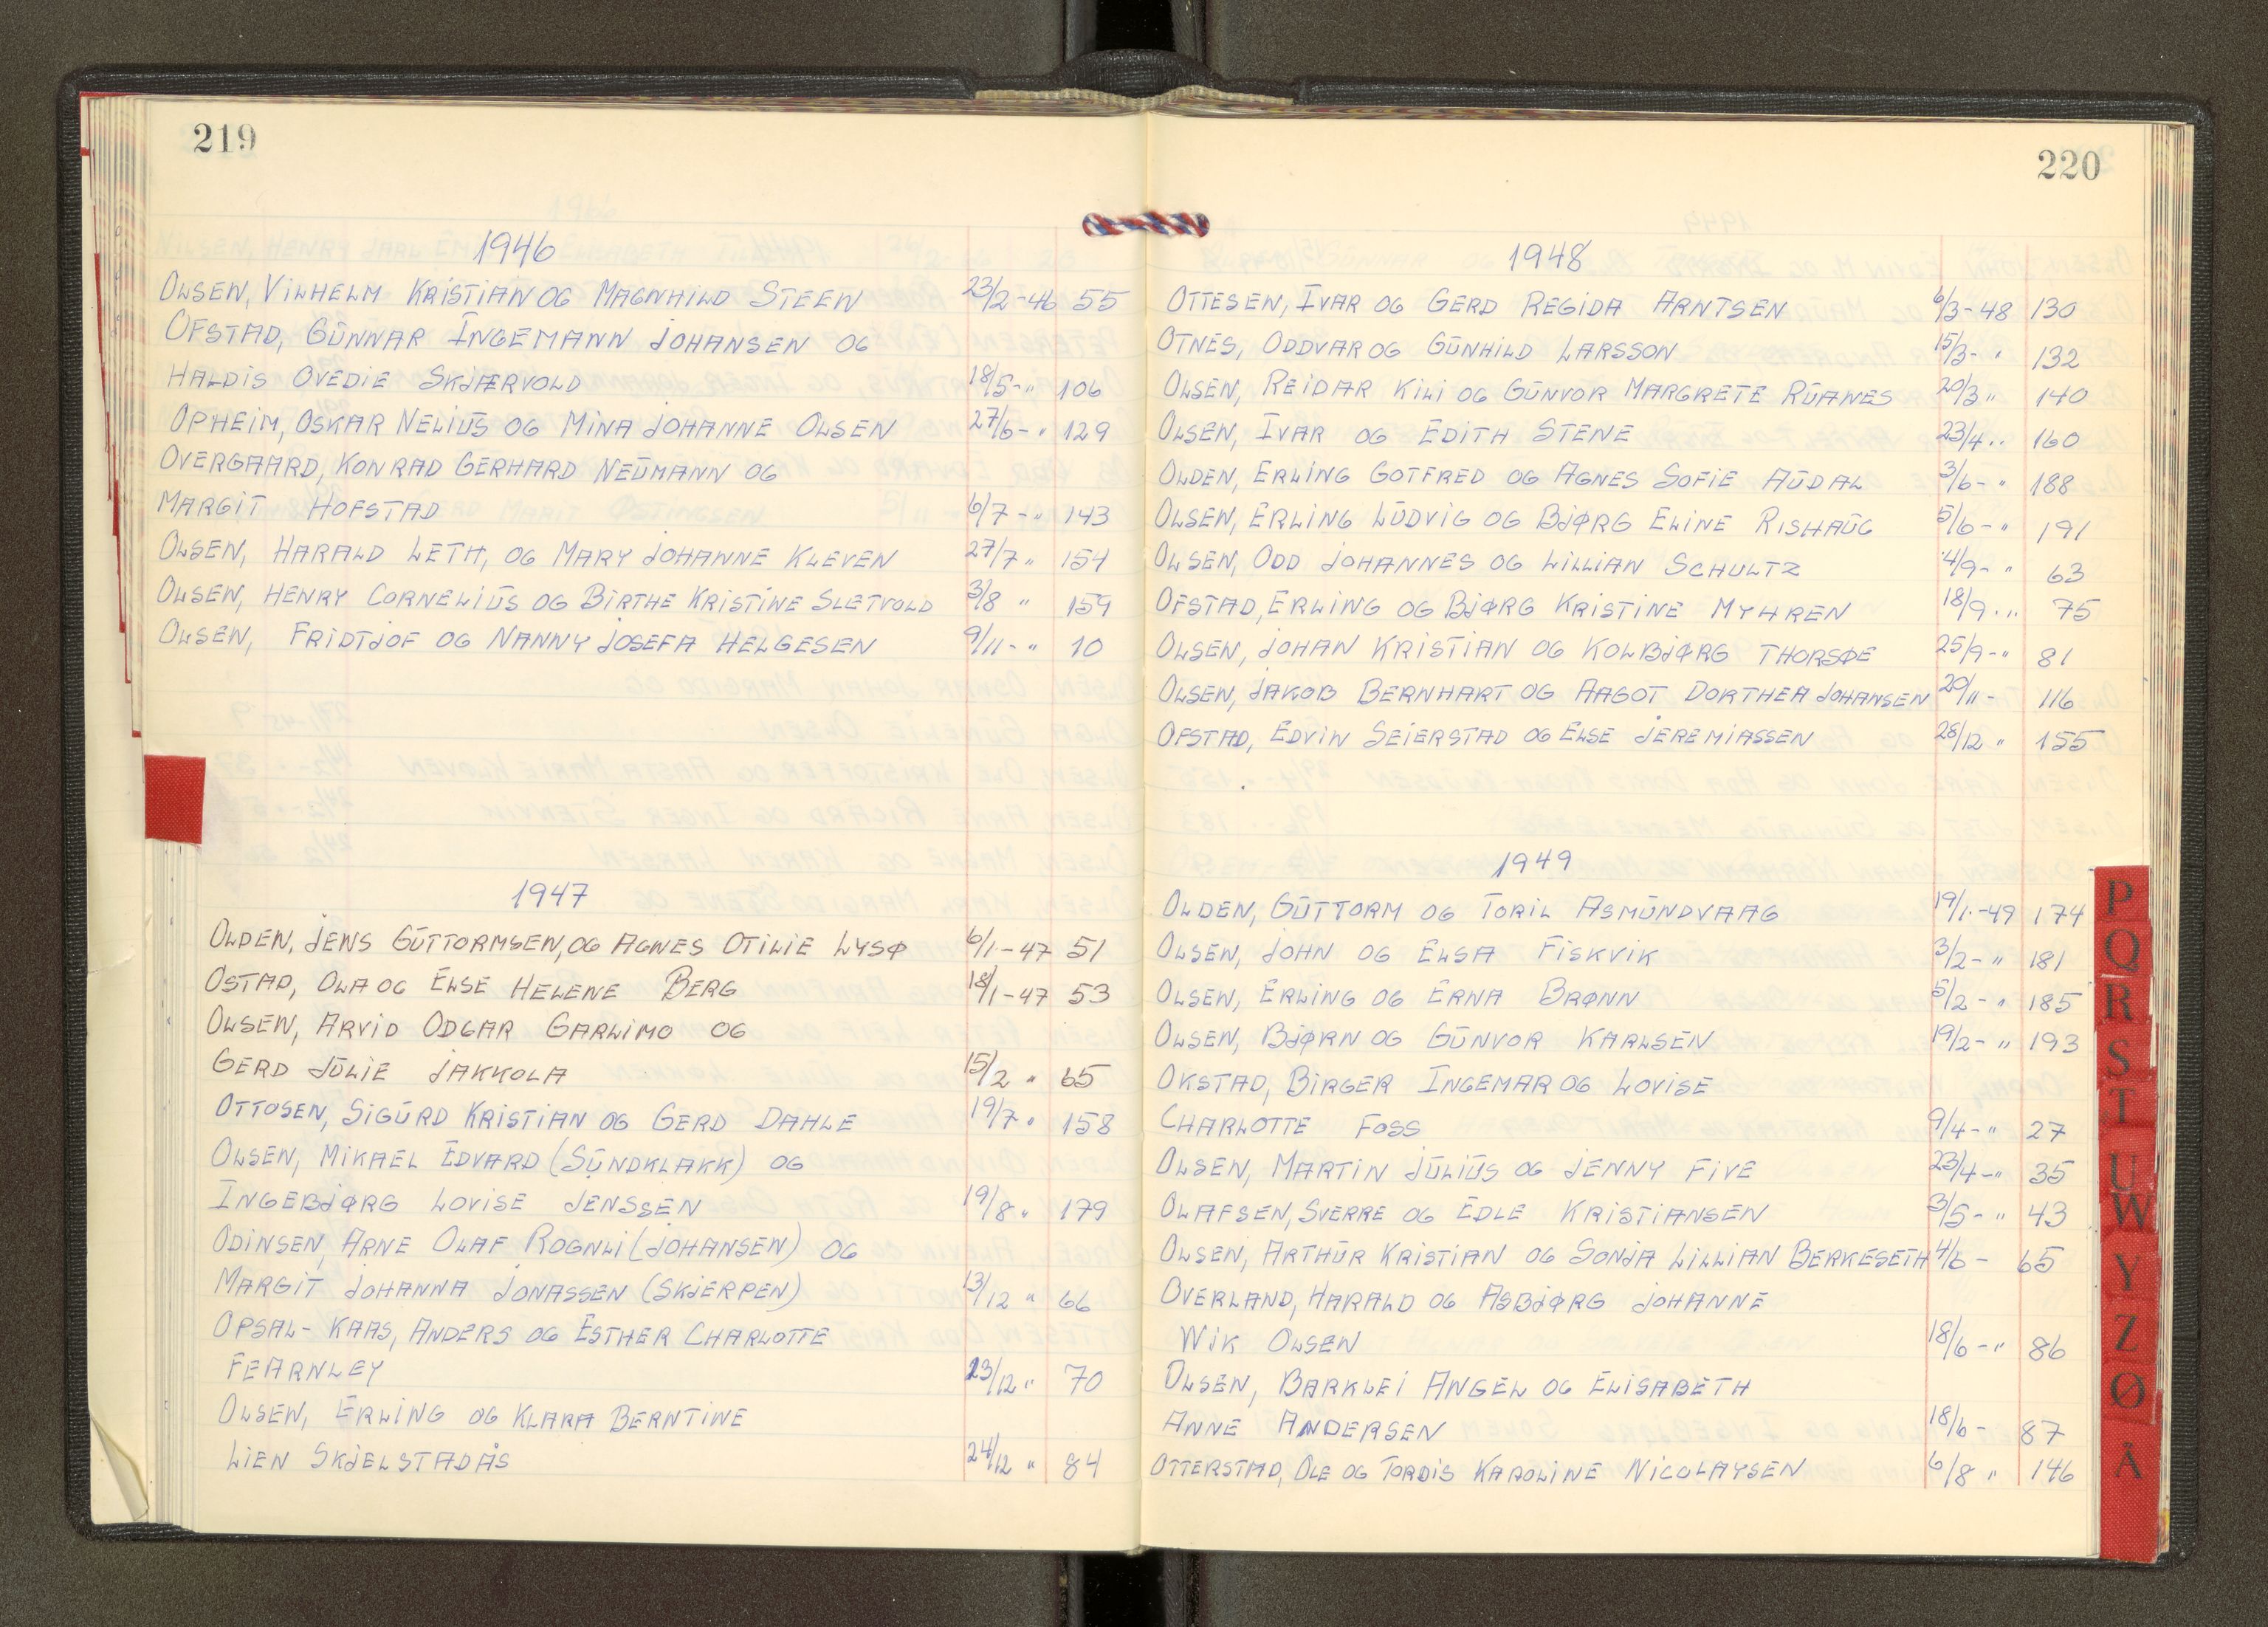 219
1946
OLSEN, VILHELM KRISTIAN OG MAGNHILD STEEN 23/2-46 55
OFSTAD, GUNNAR INGEMANN JOHANSEN OG
HALDIS OVEDIE SKJÆRVOLD 18/5-" 106
OPHEIM, OSKAR NELIUS OG MINA JOHANNE OLSEN 27/6-" 129
OVERGAARD, KONRAD GERHARD NEUMANN OG
MARGIT HOFSTAD 6/7-" 143
OLSEN, HARALD LETH, OG MARY JOHANNE KLEVEN 27/7 " 154
OLSEN, HENRY CORNELIUS OG BIRTHE KRISTINE SLETVOLD 3/8 " 159
OLSEN, FRIDTJOF OG NANNY JOSEFA HELGESEN 9/11-" 10
1947
OLDEN, JENS GUTTORMSEN, OG AGNES OTILIE LYSØ 6/1-47 51
OSTAD, OLA OG ELSE HELENE BERG 18/1-47 53
OLSEN, ARVID ODGAR GARLIMO OG
GERD JULIE JAKKOLA 15/2 " 65
OTTOSEN, SIGURD KRISTIAN OG GERD DAHLE 19/7 " 158
OLSEN, MIKAEL EDVARD (SUNDKLAKK) OG
INGEBJØRG LOVISE JENSSEN 19/8 " 179
ODINSEN, ARNE OLAF ROGNLI (JOHANSEN) OG
MARGIT JOHANNA JONASSEN (SKJERPEN) 13/12 " 66
OPSAL-KAAS, ANDERS OG ESTHER CHARLOTTE
FEARNLEY 23/12 " 70
OLSEN, ERLING OG KLARA BERNTINE
LIEN SKJELSTADÅS 24/12 " 84
220
1948
OTTESEN, IVAR OG GERD REGIDA ARNTSEN 6/3-48 130
OTNES, ODDVAR OG GUNHILD LARSSON 15/3-" 132
OLSEN, REIDAR KILI OG GUNVOR MARGRETE RUANES 20/3 " 140
OLSEN, IVAR OG EDITH STENE 23/4 " 160
OLDEN, ERLING GOTFRED OG AGNES SOFIE AUDAL 3/6-" 188
OLSEN, ERLING LUDVIG OG BJØRG ELINE RISHAUG 5/6-" 191
OLSEN, ODD JOHANNES OG LILLIAN SCHULTZ 4/9-" 63
OFSTAD, ERLING OG BJØRG KRISTINE MYHREN 18/9 " 75
OLSEN, JOHAN KRISTIAN OG KOLBJØRG THORSØE 25/9-" 81
OLSEN, JAKOB BERNHART OG AAGOT DORTHEA JOHANSEN 20/11- 116
OFSTAD, EDVIN SEIERSTAD OG ELSE JEREMIASSEN 28/12 " 155
1949
OLDEN, GUTTORM OG TORIL ASMUNDVAAG 19/1-49 174
OLSEN, JOHN OG ELSA FISKVIK 3/2-" 181
OLSEN, ERLING OG ERNA BRØNN 5/2-" 185
OLSEN, BJØRN OG GUNVOR KARLSEN 19/2-" 193
OKSTAD, BIRGER INGEMAR OG LOVISE
CHARLOTTE FOSS 9/4-" 27
OLSEN, MARTIN JULIUS OG JENNY FIVE 23/4-" 35
OLAFSEN, SVERRE OG EDLE KRISTIANSEN 3/5-" 43
OLSEN, ARTHUR KRISTIAN OG SONJA LILLIAN BERKESETH 4/6- 65
OVERLAND, HARALD OG ASBJØRG JOHANNE
WIK OLSEN 18/6-" 86
OLSEN, BARKLEI ANGEL OG ELISABETH
ANNE ANDERSEN 18/6- 87
OTTERSTAD, OLE OG TORDIS KAROLINE NICOLAYSEN 6/8 " 146
P
Q
R
S
T
U
W
Y
Z
Ø
A